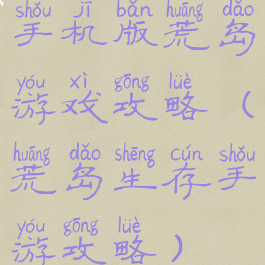 shǒu jī bǎn huāng dǎo
手机版荒岛
yóu xì gōng lüè
游戏攻略（
huāng dǎo shēng cún shǒu
荒岛生存手
yóu gōng lüè
游攻略）